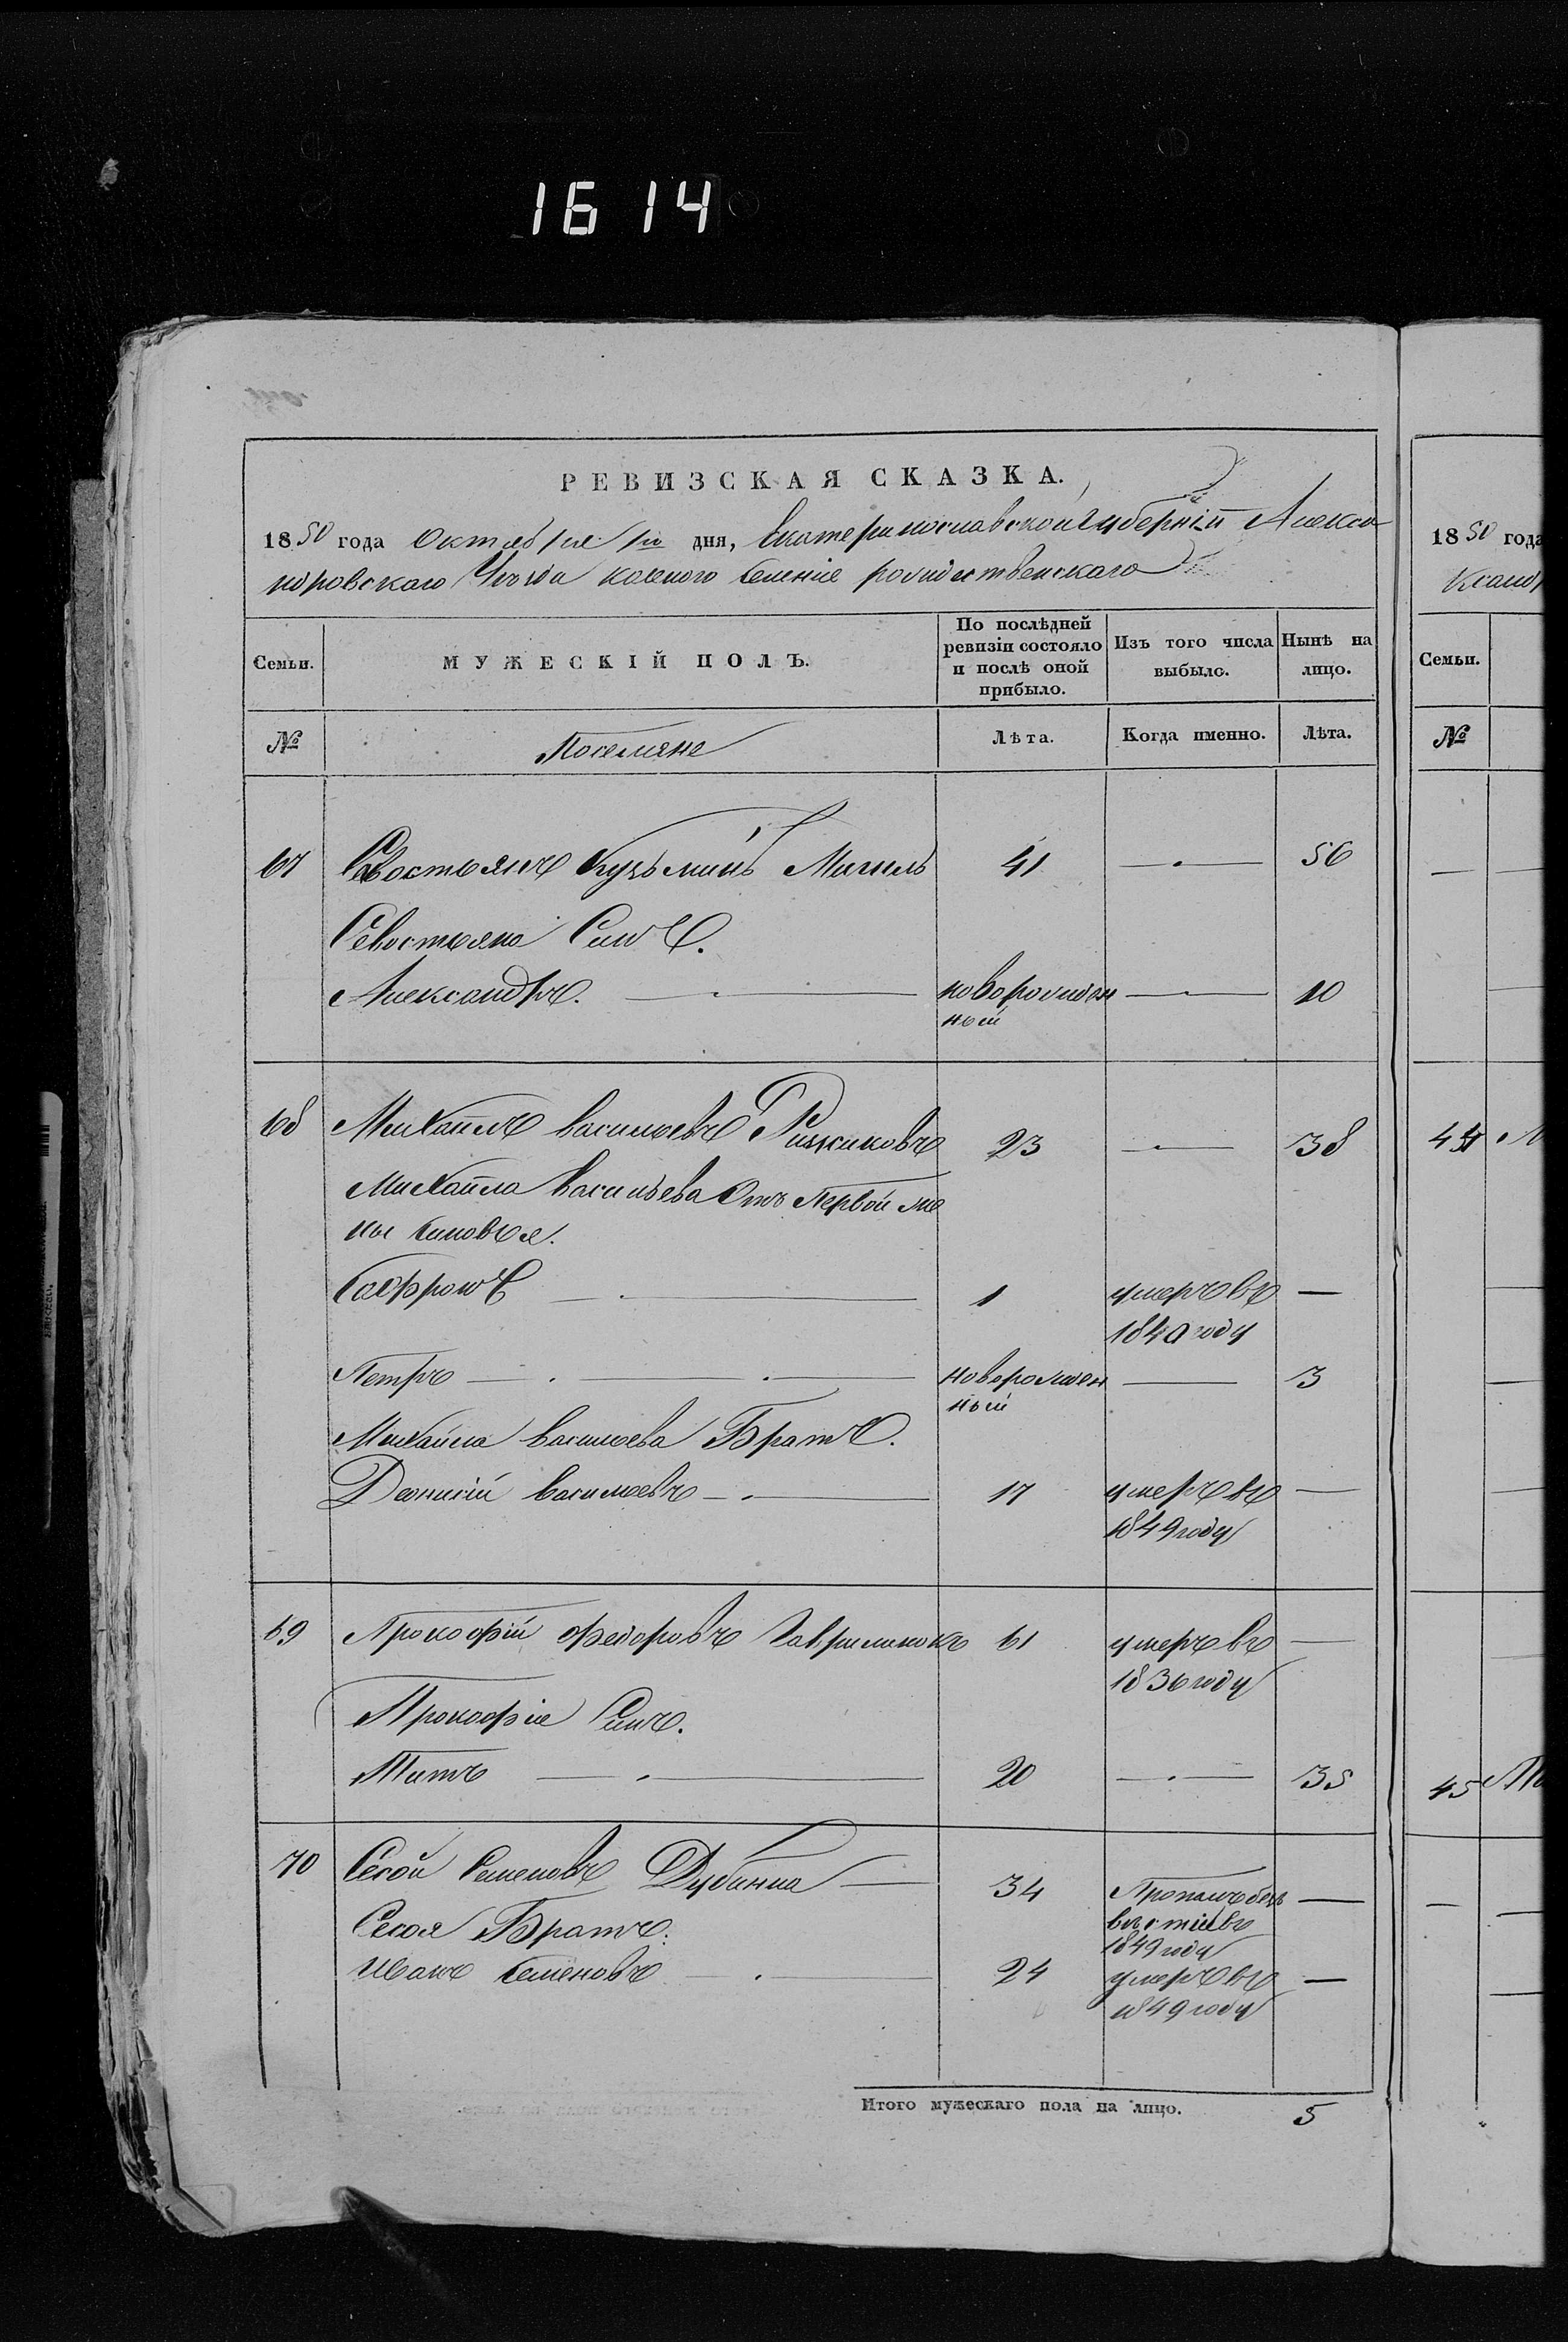 1614
РЕВИЗСКАЯ СКАЗКА.
1850 года Октября 1го дня, Екатеринославской Губерніи Алекса
ндровскаго Уѣзда казеннаго селеніе рождественскаго
Семьи. МУЖЕСКІЙ ПОЛЪ. По послѣдней ревизіи состояло и послѣ оной прибыло. Изъ того числа выбыло. Нынѣ на лицо.
№ Поселяне Лѣта. Когда именно. Лѣта.
67 Севостьянъ Кузьминъ 41 — 56
Севостьяна Синъ.
Александръ. — новорожден — 10
ный
68 Михаилъ васильевъ Рижиковъ 23 — 38
Михаила васильева Отъ Первой же
ны синовья.
Сафронъ — 1 умеръ въ —
1840 году
Петръ — новорожден — 3
ный
Михайла васильева Братъ.
Деонисій васильевъ — 17 умеръ въ —
1849 году
69 Прокофій федоровъ Гавриликовъ 61 умеръ въ —
1836 году
Прокофія Синъ.
Титъ — 20 — 35
70 Сисой Семеновъ Дубинка — 34 Пропалъ безъ —
вѣстивъ
Сисоя Братъ. 1849 году
Иванъ семеновъ — 24 умеръ въ —
1849 году
Итого мужескаго пола на лицо. 5
1850 года
ксанд
Семьи.
№
44 М
45